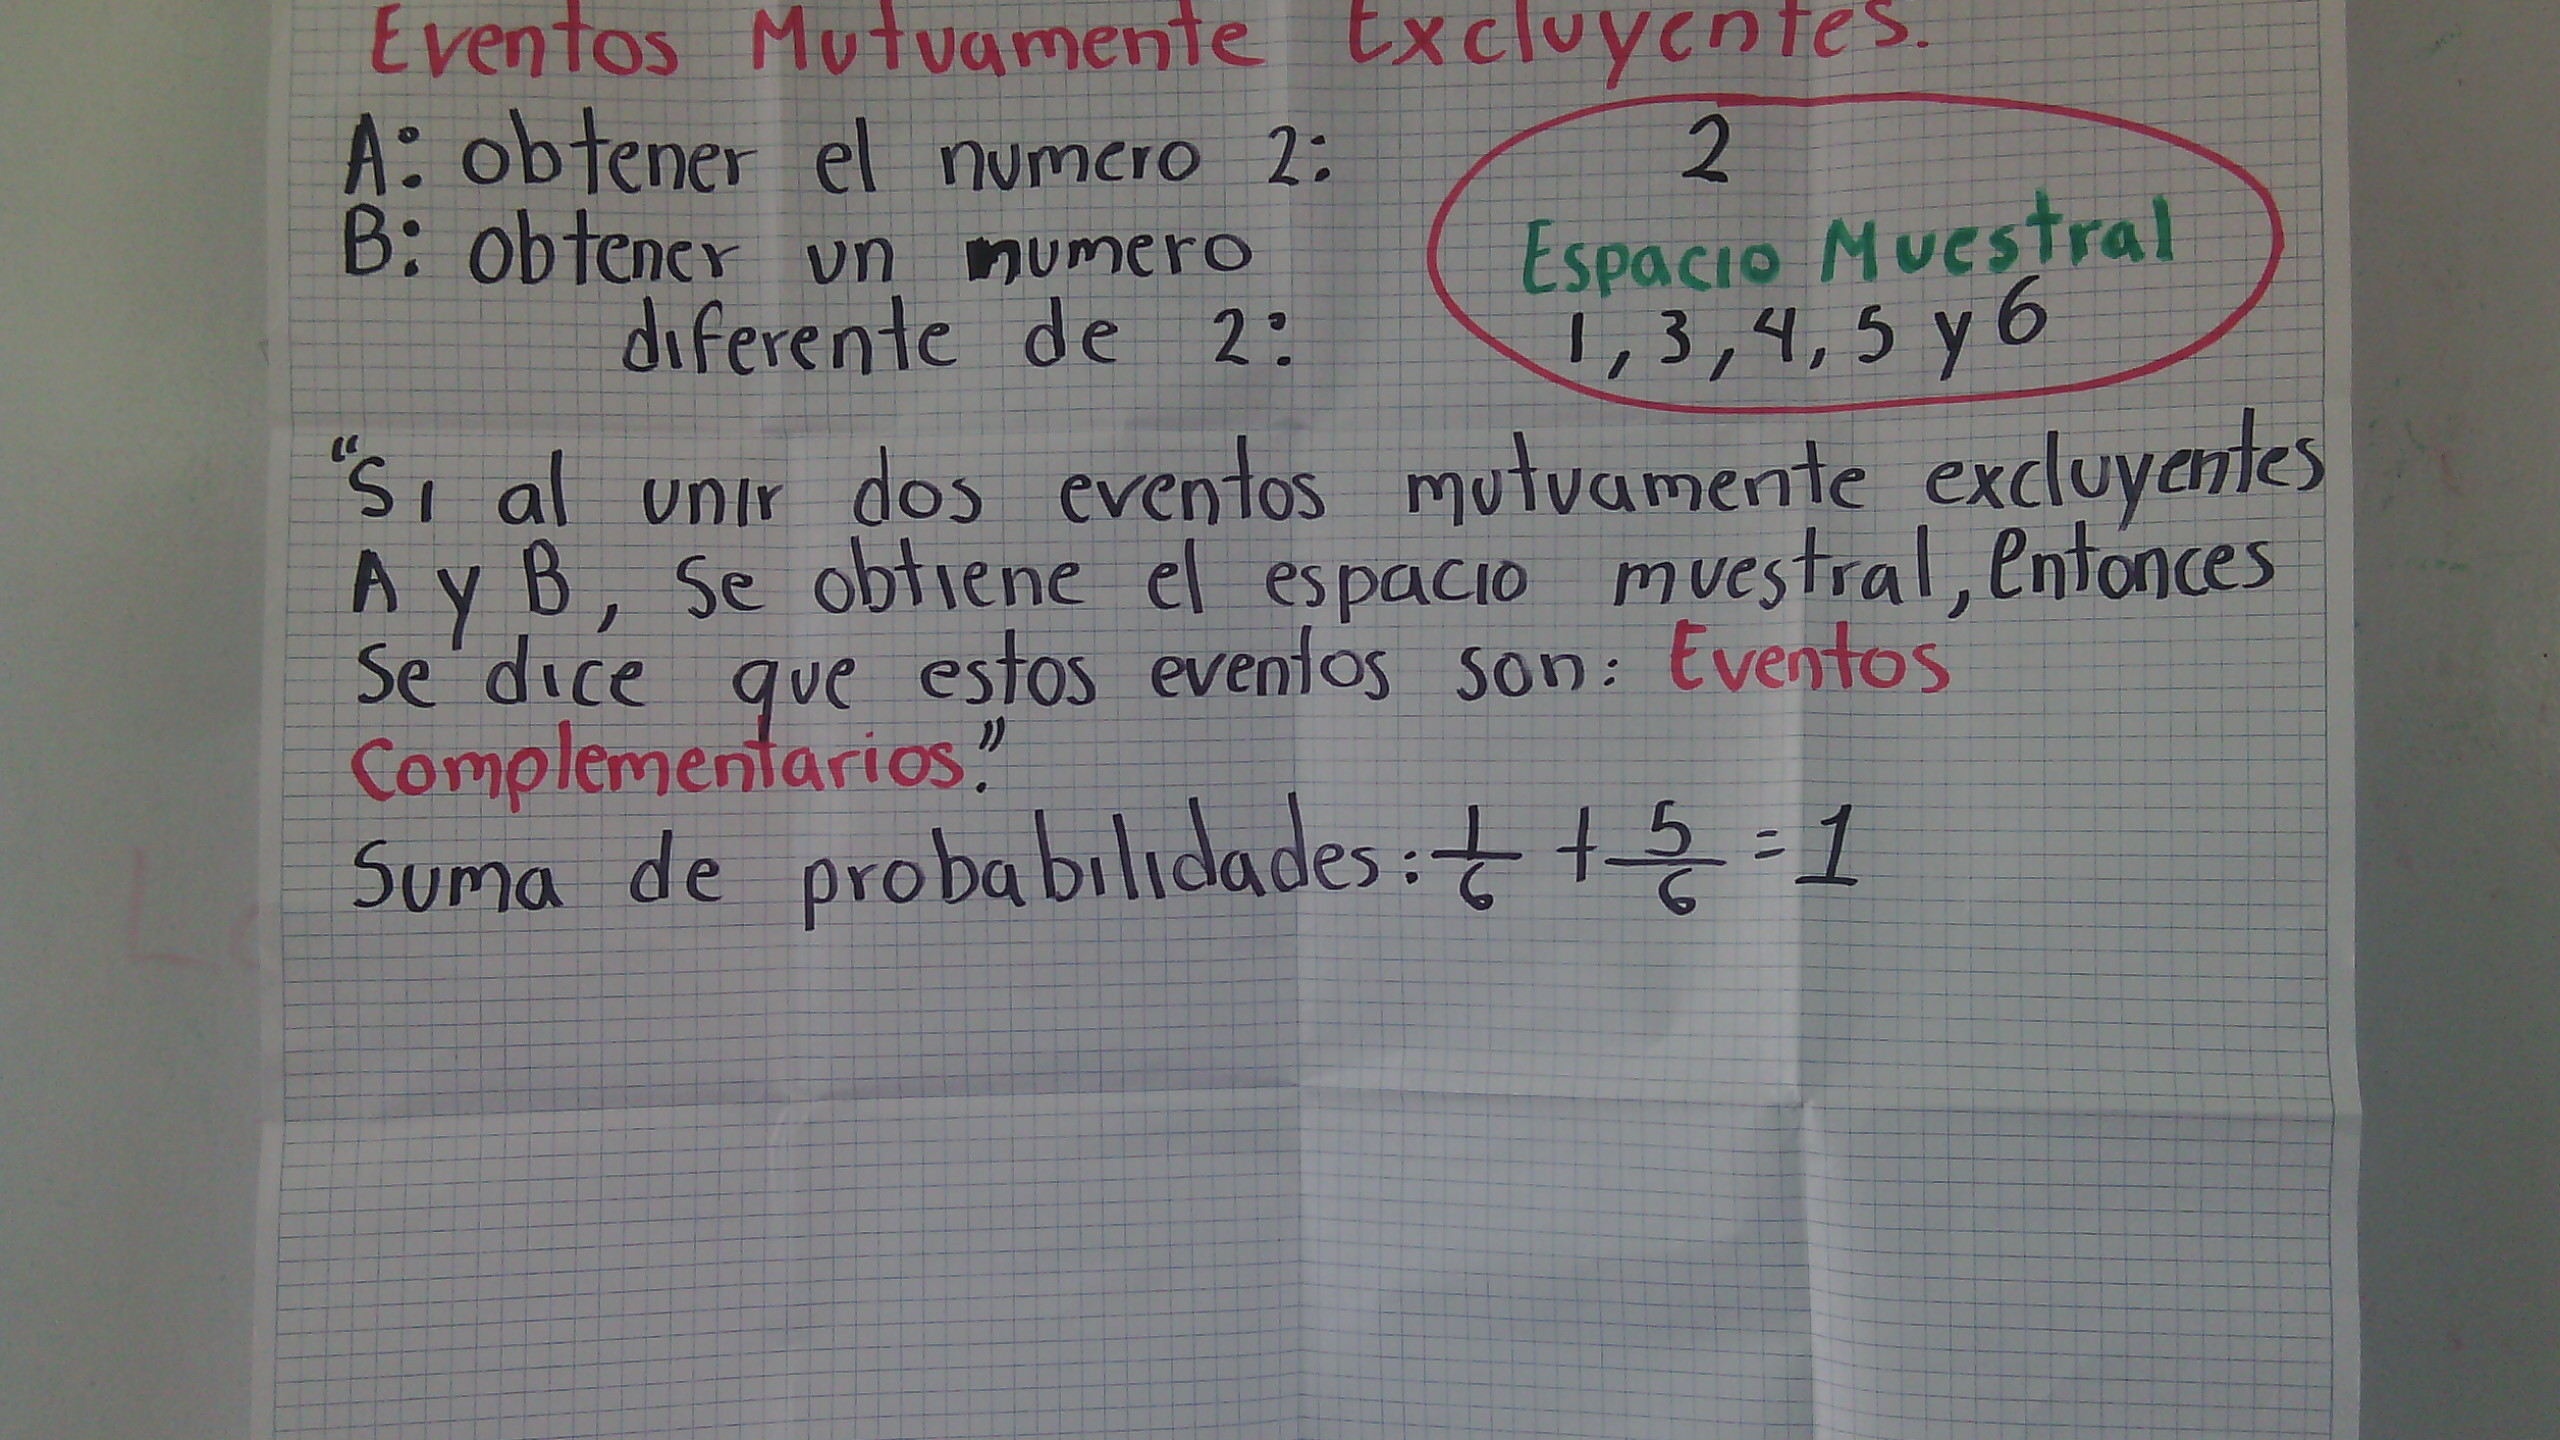 Eventos Mutuamente Excluyentes.
A: obtener el numero 2: 2
B: obtener un numero Espacio Muestral
diferente de 2: 1, 3, 4, 5 y 6
“Si al unir dos eventos mutuamente excluyentes
A y B, se obtiene el espacio muestral, entonces
se dice que estos eventos son: Eventos
Complementarios.”
Suma de probabilidades: 1/6 + 5/6 = 1